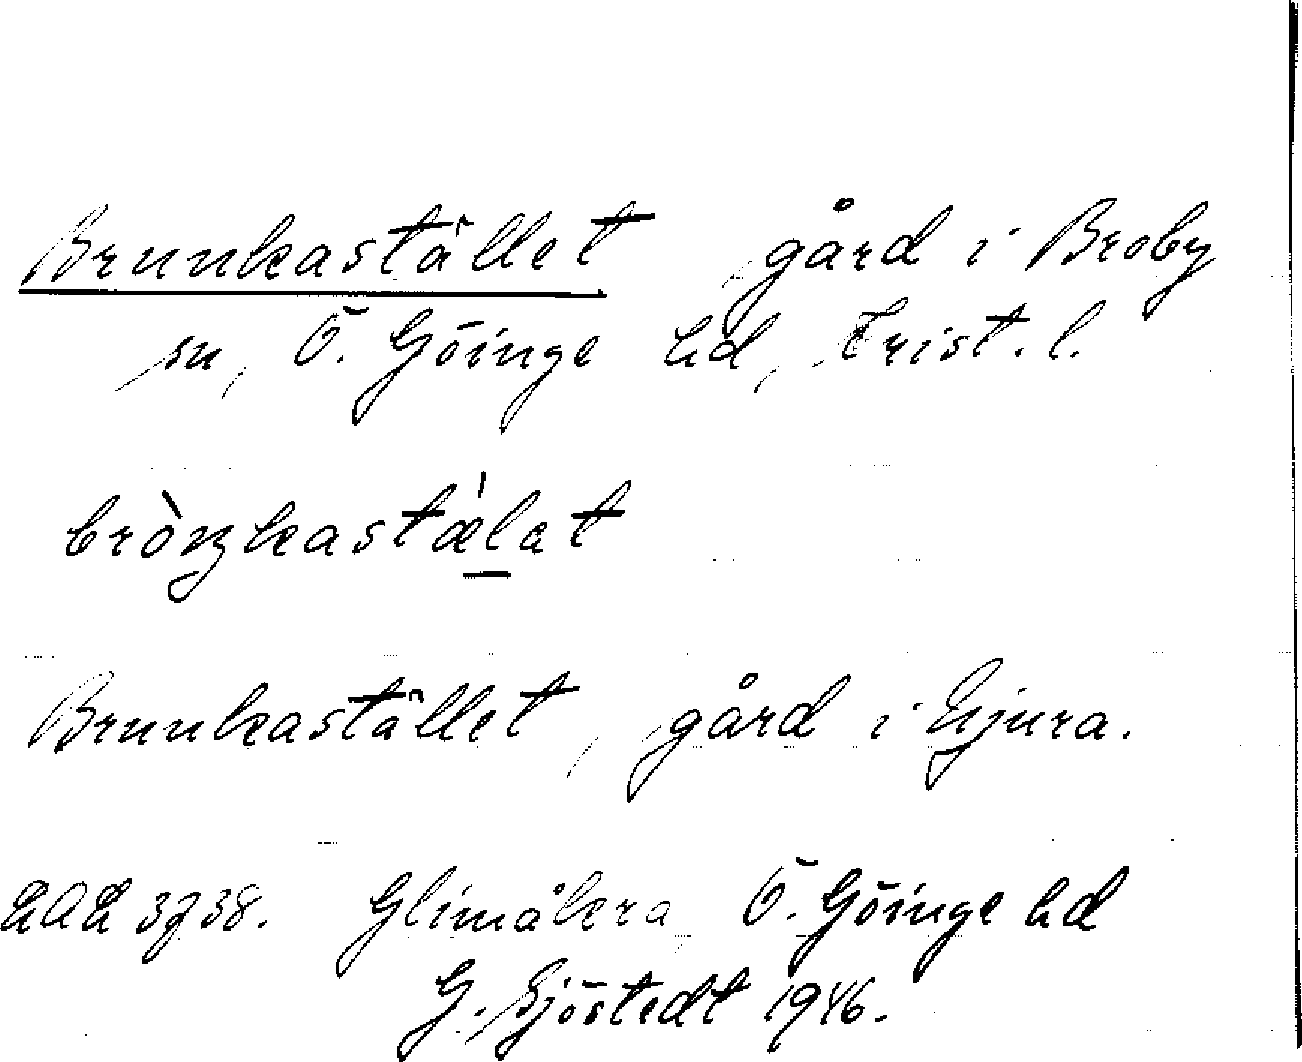 Brunkastället gård i Broby
sn, Ö. Göinge hd, Krist. l.
bròŋkastǽlat
Brunkastället, gård i Hjura.
LAL 3738. Glimåkra Ö. Göinge hd
G. Sjöstedt 1946.